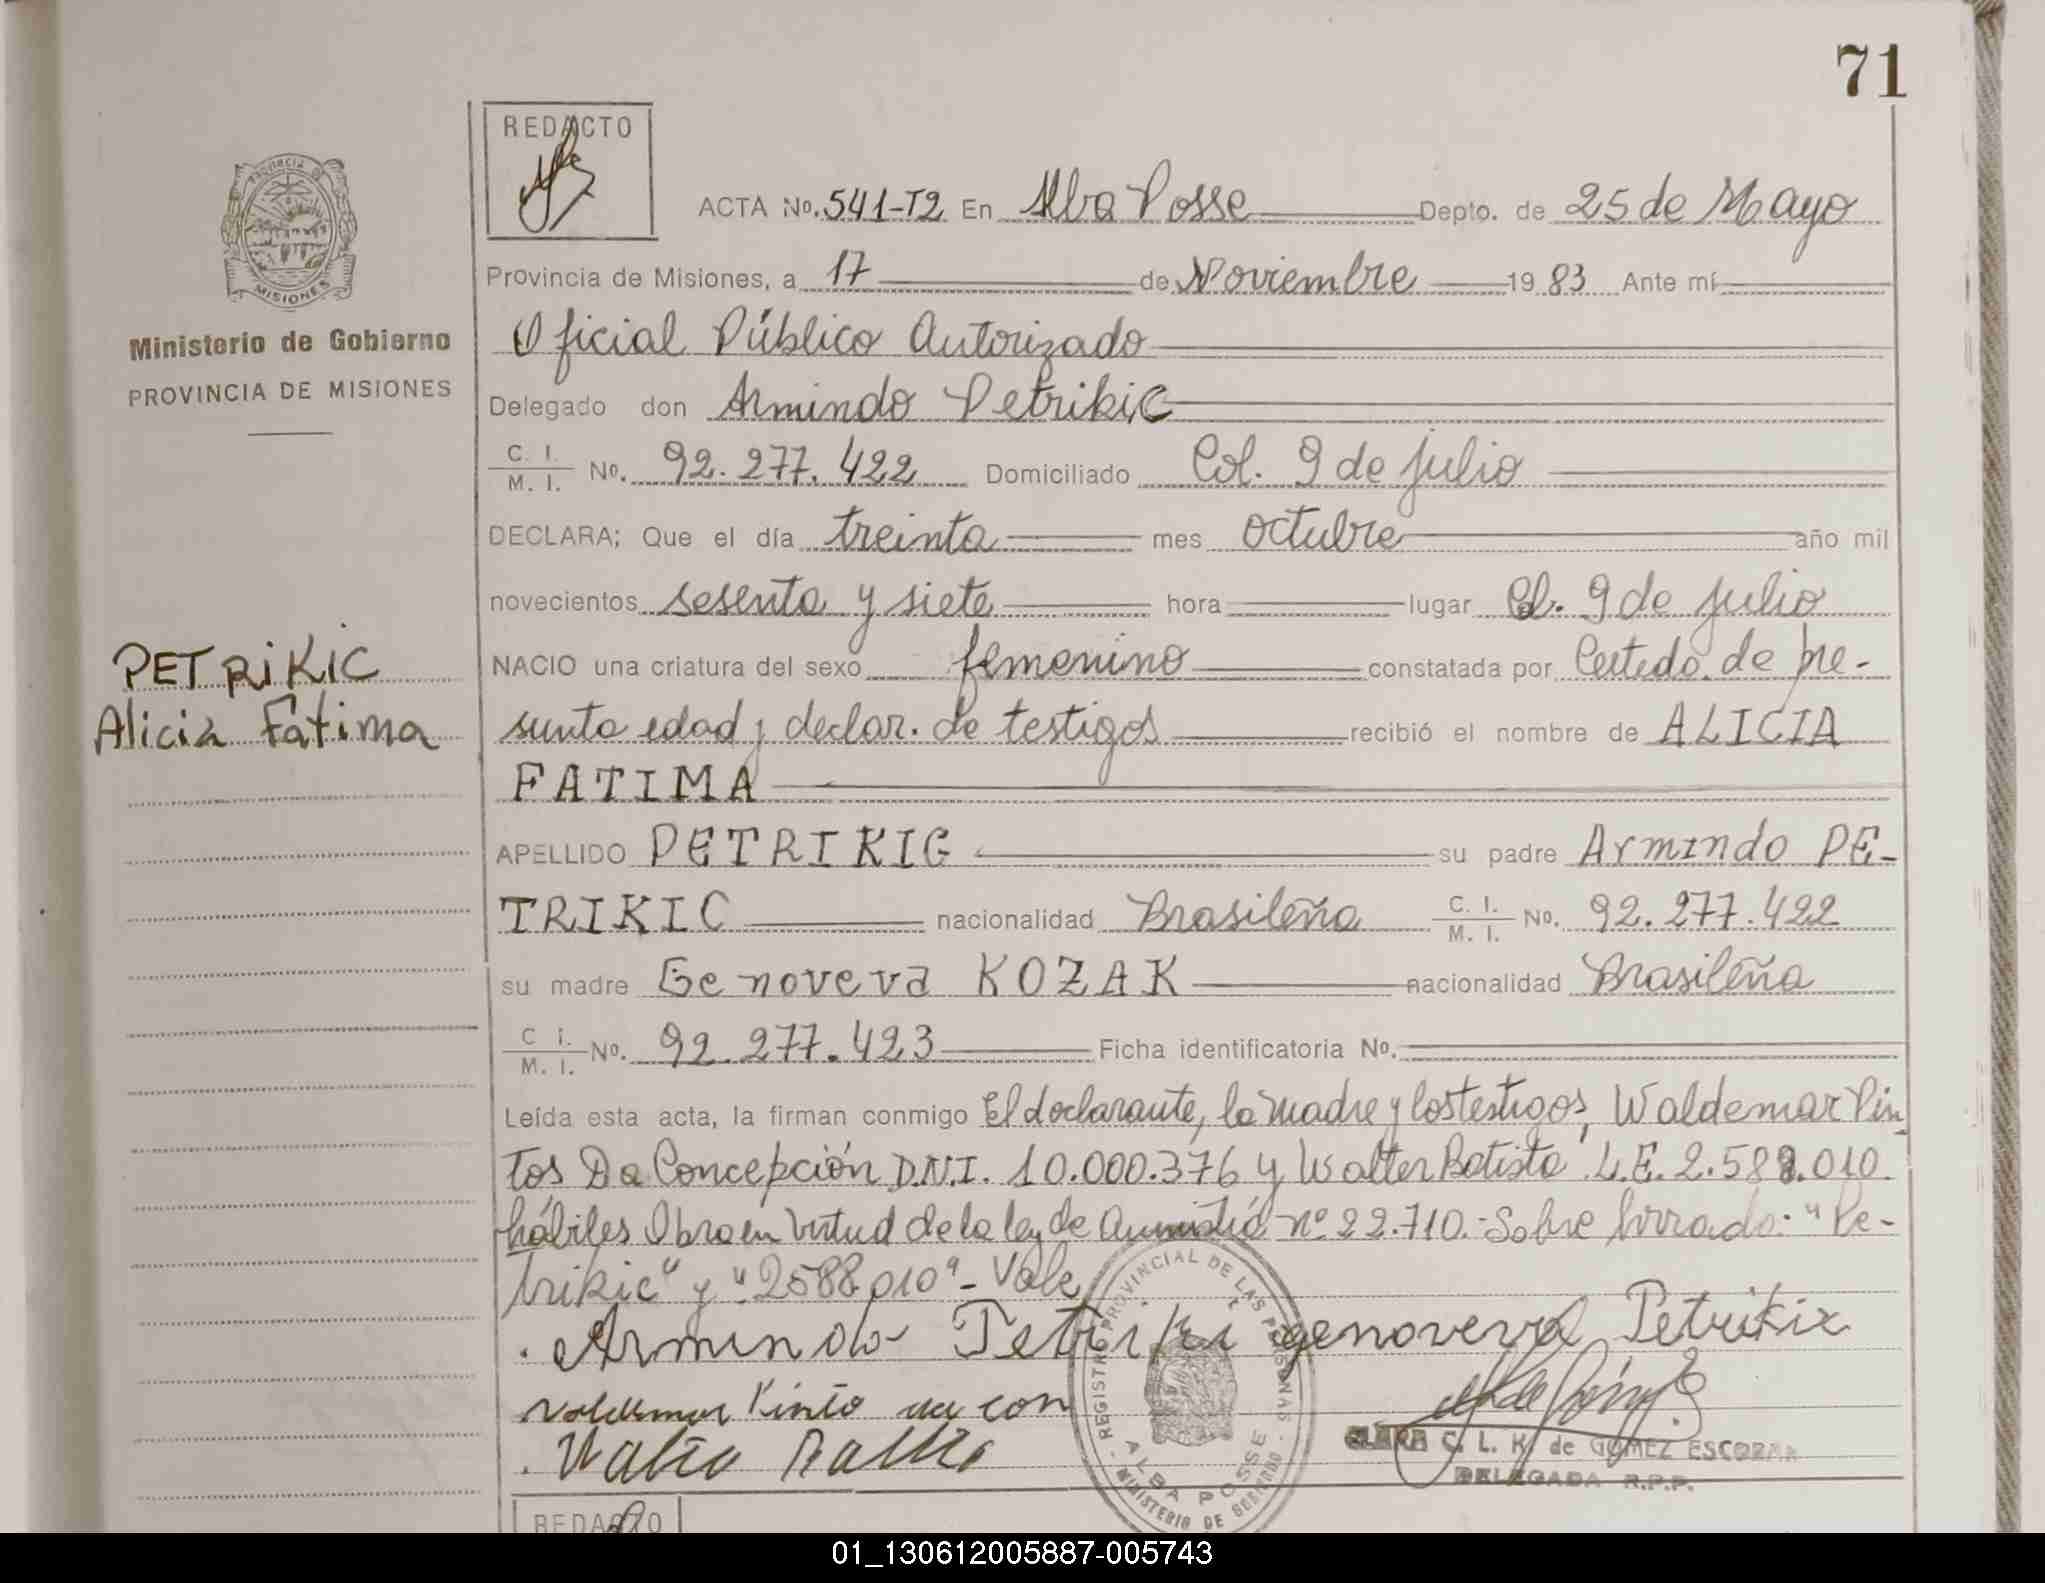 71
REDACTO
ACTA No. 541-T2 En Alba Posse Depto. de 25 de Mayo
Provincia de Misiones, a 17 de Noviembre 1983 Ante mí
Oficial Público Autorizado
Delegado don Armindo Petrikic
C. I. / M. I. No. 92.277.422 Domiciliado Col. 9 de julio
DECLARA; Que el día treinta mes octubre año mil
novecientos sesenta y siete hora lugar Col. 9 de julio
NACIO una criatura del sexo femenino constatada por Certdo. de pre-
sunta edad y declar. de testigos recibió el nombre de ALICIA
FATIMA
APELLIDO PETRIKIC su padre Armindo PE-
TRIKIC nacionalidad Brasileña C. I. / M. I. No. 92.277.422
su madre Genoveva KOZAK nacionalidad Brasileña
C. I. / M. I. No. 92.277.423 Ficha identificatoria No.
Leída esta acta, la firman conmigo El declarante, la madre y los testigos, Waldemar Pin-
tos Da Concepción D.N.I. 10.000.376 y Walter Batista L.E. 2.588.010.
hábiles Obra en virtud de la ley de Amnistía nº 22.710.- Sobre borrado: "Pe-
trikic" y "2588.010"- Vale
Armindo Petriki genoveva Petrikix
REGISTRO PROVINCIAL DE LAS PERSONAS
ALBA POSSE
MINISTERIO DE GOBIERNO
CLARA C. L. K. de GOMEZ ESCOBAR
DELEGADA R.P.P.
REDACTO
Provincia
MISIONES
Ministerio de Gobierno
PROVINCIA DE MISIONES
PETRIKIC
Alicia Fátima
01_130612005887-005743